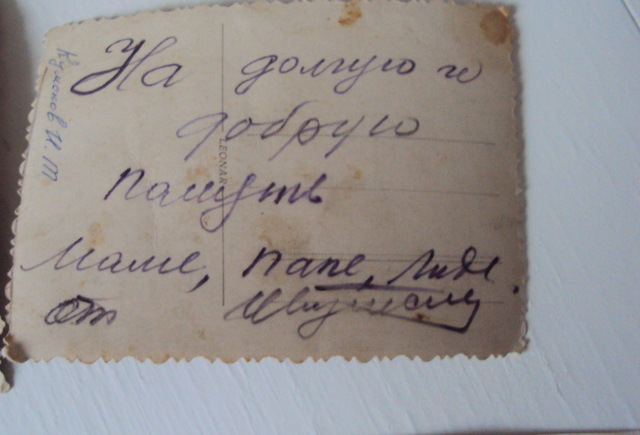 На долгую и
добрую
память
Маме, папе, Лиде.
от
Кумоков И. Т
LEONAR